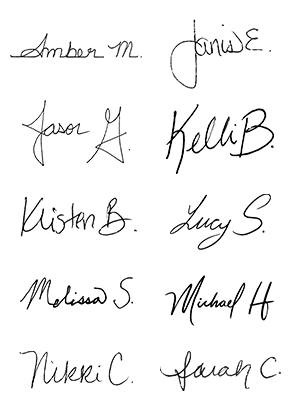 Amber M.
Janis E.
Jason G.
Kelli B.
Kristen B.
Lucy S.
Melissa S.
Michael H
Nikki C.
Sarah C.